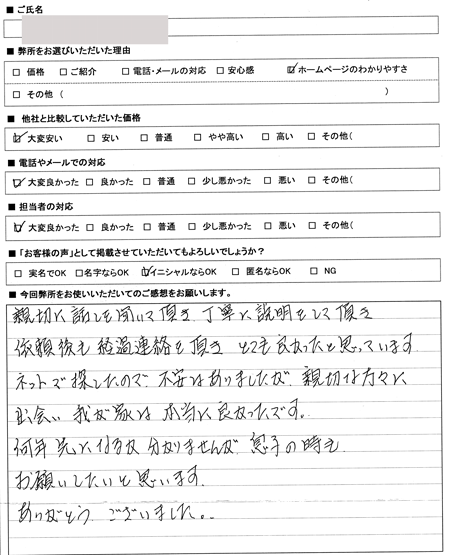 ■ ご氏名
■ 弊所をお選びいただいた理由
□ 価格 □ご紹介 □電話・メールの対応 □安心感 ☑ホームページのわかりやすさ
□ その他（ ）
■ 他社と比較していただいた価格
☑大変安い □ 安い □ 普通 □ やや高い □ 高い □ その他（
■ 電話やメールでの対応
☑大変良かった □ 良かった □ 普通 □ 少し悪かった □ 悪い □ その他（
■ 担当者の対応
☑大変良かった □ 良かった □ 普通 □ 少し悪かった □ 悪い □ その他（
■ 「お客様の声」として掲載させていただいてもよろしいでしょうか？
□ 実名でOK □名字ならOK ☑イニシャルならOK □ 匿名ならOK □ NG
■ 今回弊所をお使いいただいてのご感想をお願いします。
親切に話しを聞いて頂き 丁寧に説明をして頂き
依頼後も 経過連絡を頂き とても良かったと思っています
ネットで探したので 不安はありましたが 親切な方々に
出会い 我が家は 本当に良かったです。
何年先になるか 分かりませんが 息子の時も
お願いしたいと思います
ありがとう ございました。